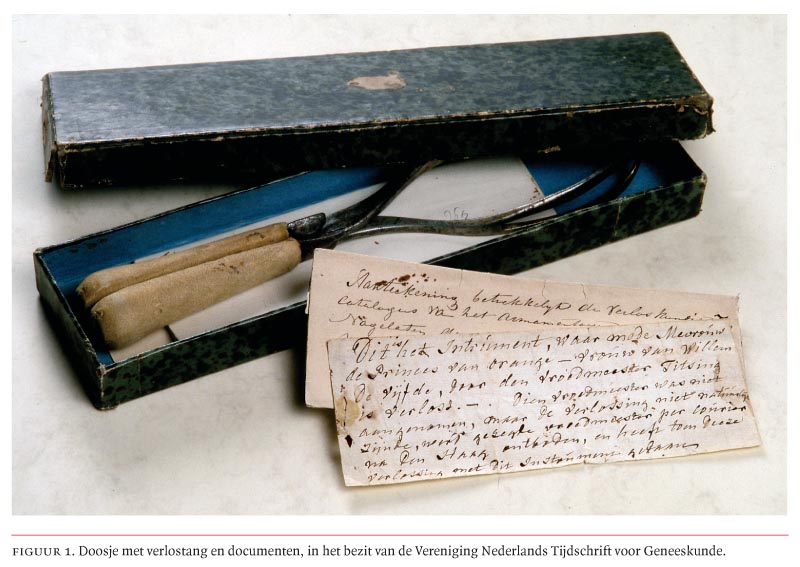 Aantekening betrekkelyk de verloskundi
catalogus van het Armamentar
Nagelaten d
Dit het Intriment, waar mede Mevrouw
de Princes van Orange – vrouw van Willem
de Vijfde, door den vroedmeester Titsing
is verlost. – Dien vroedmeester was niet
aangenomen, maar de verlossing niet natuurlijk
zijnde, werd gezegde vroedmeester per courier
na Den Haag ontboden, en heeft toen deeze
verlossing met dit Instrument gedaan
FIGUUR 1. Doosje met verlostang en documenten, in het bezit van de Vereniging Nederlands Tijdschrift voor Geneeskunde.